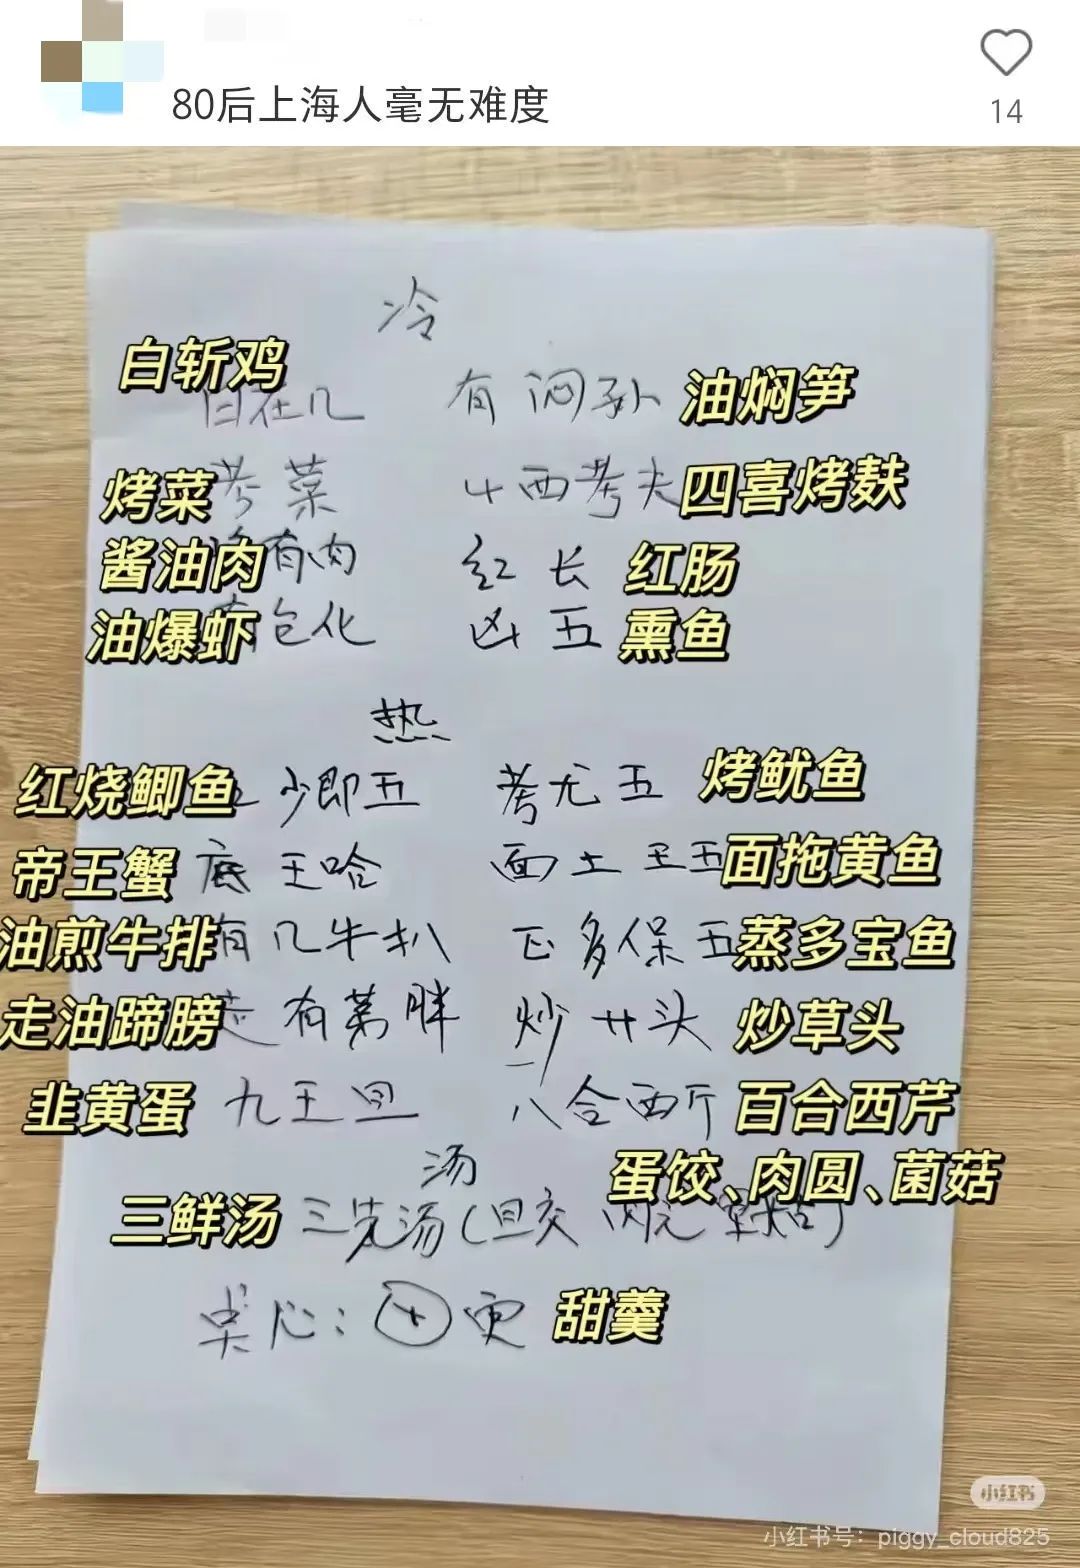 80后上海人毫无难度
14
冷
白斩鸡
白在几 有闷孙 油焖笋
烤菜 考菜 四西考夫 四喜烤麸
酱油肉 有肉 红长 红肠
油爆虾 有包化 凶五 熏鱼
热
红烧鲫鱼 少即五 考尤五 烤鱿鱼
帝王蟹 底王哈 面土王五 面拖黄鱼
油煎牛排 有几牛扒 正多保五 蒸多宝鱼
走油蹄膀 走有弟胖 炒廿头 炒草头
韭黄蛋 九王旦 八合西斤 百合西芹
汤 蛋饺、肉圆、菌菇
三鲜汤 三先汤(旦交 肉元
点心: 田更 甜羹
小红书
小红书号: piggy_cloud825